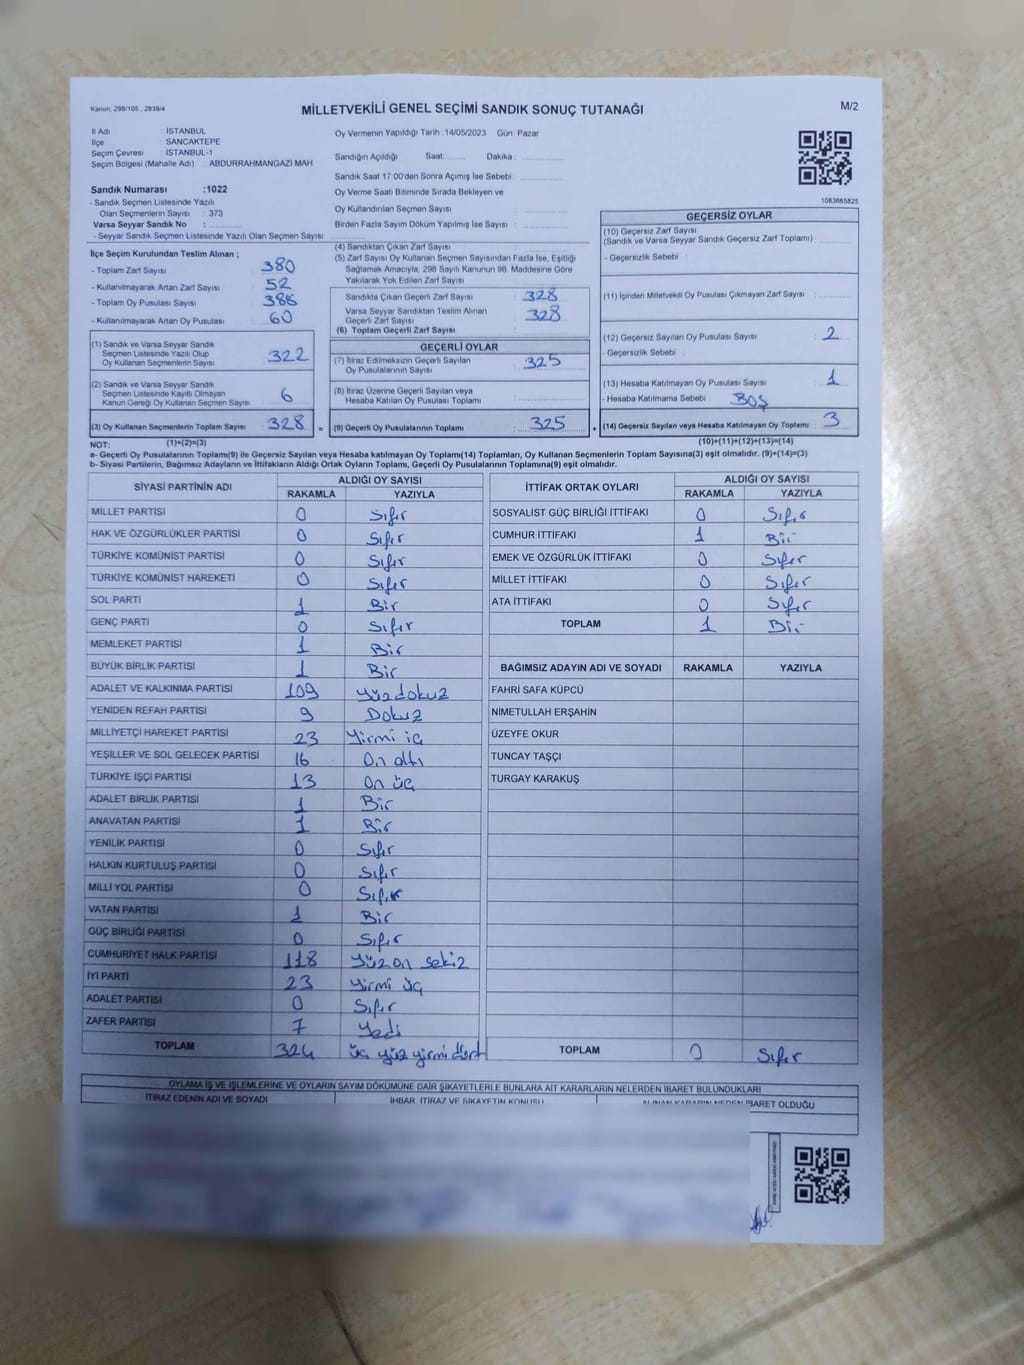 Kanun: 298/105 , 2839/4
MİLLETVEKİLİ GENEL SEÇİMİ SANDIK SONUÇ TUTANAĞI
M/2
İl Adı : İSTANBUL
İlçe : SANCAKTEPE
Seçim Çevresi : İSTANBUL-1
Seçim Bölgesi (Mahalle Adı) : ABDURRAHMANGAZİ MAH
Sandık Numarası :1022
- Sandık Seçmen Listesinde Yazılı
Olan Seçmenlerin Sayısı : 373
Varsa Seyyar Sandık No :
- Seyyar Sandık Seçmen Listesinde Yazılı Olan Seçmen Sayısı :
Oy Vermenin Yapıldığı Tarih :14/05/2023 Gün: Pazar
Sandığın Açıldığı Saat: Dakika :
Sandık Saat 17:00'den Sonra Açılmış İse Sebebi :
Oy Verme Saati Bitiminde Sırada Bekleyen ve
Oy Kullandırılan Seçmen Sayısı :
Birden Fazla Sayım Döküm Yapılmış İse Sayısı :
1083665825
İlçe Seçim Kurulundan Teslim Alınan ;
- Toplam Zarf Sayısı : 380
- Kullanılmayarak Artan Zarf Sayısı : 52
- Toplam Oy Pusulası Sayısı : 388
- Kullanılmayarak Artan Oy Pusulası : 60
(1) Sandık ve Varsa Seyyar Sandık
Seçmen Listesinde Yazılı Olup
Oy Kullanan Seçmenlerin Sayısı : 322
(2) Sandık ve Varsa Seyyar Sandık
Seçmen Listesinde Kayıtlı Olmayan
Kanun Gereği Oy Kullanan Seçmen Sayısı : 6
(3) Oy Kullanan Seçmenlerin Toplam Sayısı : 328
(4) Sandıktan Çıkan Zarf Sayısı :
(5) Zarf Sayısı Oy Kullanan Seçmen Sayısından Fazla İse, Eşitliği
Sağlamak Amacıyla, 298 Sayılı Kanunun 98. Maddesine Göre
Yakılarak Yok Edilen Zarf Sayısı :
Sandıkta Çıkan Geçerli Zarf Sayısı : 328
Varsa Seyyar Sandıktan Teslim Alınan
Geçerli Zarf Sayısı : 328
(6) Toplam Geçerli Zarf Sayısı :
GEÇERLİ OYLAR
(7) İtiraz Edilmeksizin Geçerli Sayılan
Oy Pusulalarının Sayısı : 325
(8) İtiraz Üzerine Geçerli Sayılan veya
Hesaba Katılan Oy Pusulası Toplamı :
= (9) Geçerli Oy Pusulalarının Toplamı : 325 +
GEÇERSİZ OYLAR
(10) Geçersiz Zarf Sayısı
(Sandık ve Varsa Seyyar Sandık Geçersiz Zarf Toplamı) :
- Geçersizlik Sebebi :
(11) İçinden Milletvekili Oy Pusulası Çıkmayan Zarf Sayısı :
(12) Geçersiz Sayılan Oy Pusulası Sayısı : 2
- Geçersizlik Sebebi :
(13) Hesaba Katılmayan Oy Pusulası Sayısı : 1
- Hesaba Katılmama Sebebi : BOŞ
(14) Geçersiz Sayılan veya Hesaba Katılmayan Oy Toplamı : 3
NOT: (1)+(2)=(3) (10)+(11)+(12)+(13)=(14)
a- Geçerli Oy Pusulalarının Toplamı(9) ile Geçersiz Sayılan veya Hesaba katılmayan Oy Toplamı(14) Toplamları, Oy Kullanan Seçmenlerin Toplam Sayısına(3) eşit olmalıdır. (9)+(14)=(3)
b- Siyasi Partilerin, Bağımsız Adayların ve İttifakların Aldığı Ortak Oyların Toplamı, Geçerli Oy Pusulalarının Toplamına(9) eşit olmalıdır.
SİYASİ PARTİNİN ADI ALDIĞI OY SAYISI
RAKAMLA YAZIYLA
MİLLET PARTİSİ 0 Sıfır
HAK VE ÖZGÜRLÜKLER PARTİSİ 0 Sıfır
TÜRKİYE KOMÜNİST PARTİSİ 0 Sıfır
TÜRKİYE KOMÜNİST HAREKETİ 0 Sıfır
SOL PARTİ 1 Bir
GENÇ PARTİ 0 Sıfır
MEMLEKET PARTİSİ 1 Bir
BÜYÜK BİRLİK PARTİSİ 1 Bir
ADALET VE KALKINMA PARTİSİ 109 Yüzdokuz
YENİDEN REFAH PARTİSİ 9 Dokuz
MİLLİYETÇİ HAREKET PARTİSİ 23 Yirmi üç
YEŞİLLER VE SOL GELECEK PARTİSİ 16 On altı
TÜRKİYE İŞÇİ PARTİSİ 13 On üç
ADALET BİRLİK PARTİSİ 1 Bir
ANAVATAN PARTİSİ 1 Bir
YENİLİK PARTİSİ 0 Sıfır
HALKIN KURTULUŞ PARTİSİ 0 Sıfır
MİLLİ YOL PARTİSİ 0 Sıfır
VATAN PARTİSİ 1 Bir
GÜÇ BİRLİĞİ PARTİSİ 0 Sıfır
CUMHURİYET HALK PARTİSİ 118 Yüz on sekiz
İYİ PARTİ 23 Yirmi üç
ADALET PARTİSİ 0 Sıfır
ZAFER PARTİSİ 7 Yedi
TOPLAM 324 üç yüz yirmi dört
İTTİFAK ORTAK OYLARI ALDIĞI OY SAYISI
RAKAMLA YAZIYLA
SOSYALİST GÜÇ BİRLİĞİ İTTİFAKI 0 Sıfır
CUMHUR İTTİFAKI 1 Bir
EMEK VE ÖZGÜRLÜK İTTİFAKI 0 Sıfır
MİLLET İTTİFAKI 0 Sıfır
ATA İTTİFAKI 0 Sıfır
TOPLAM 1 Bir
BAĞIMSIZ ADAYIN ADI VE SOYADI RAKAMLA YAZIYLA
FAHRİ SAFA KÜPCÜ
NİMETULLAH ERŞAHİN
ÜZEYFE OKUR
TUNCAY TAŞÇI
TURGAY KARAKUŞ
TOPLAM 0 Sıfır
OYLAMA İŞ VE İŞLEMLERİNE VE OYLARIN SAYIM DÖKÜMÜNE DAİR ŞİKAYETLERLE BUNLARA AİT KARARLARIN NELERDEN İBARET BULUNDUKLARI
İTİRAZ EDENİN ADI VE SOYADI İHBAR, İTİRAZ VE ŞİKAYETİN KONUSU ALINAN KARARIN NEDEN İBARET OLDUĞU